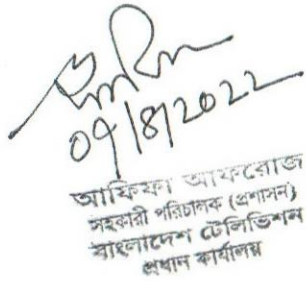 ০৭/৪/2022
আফিফা আফরোজ
সহকারী পরিচালক (প্রশাসন)
বাংলাদেশ টেলিভিশন
প্রধান কার্যালয়